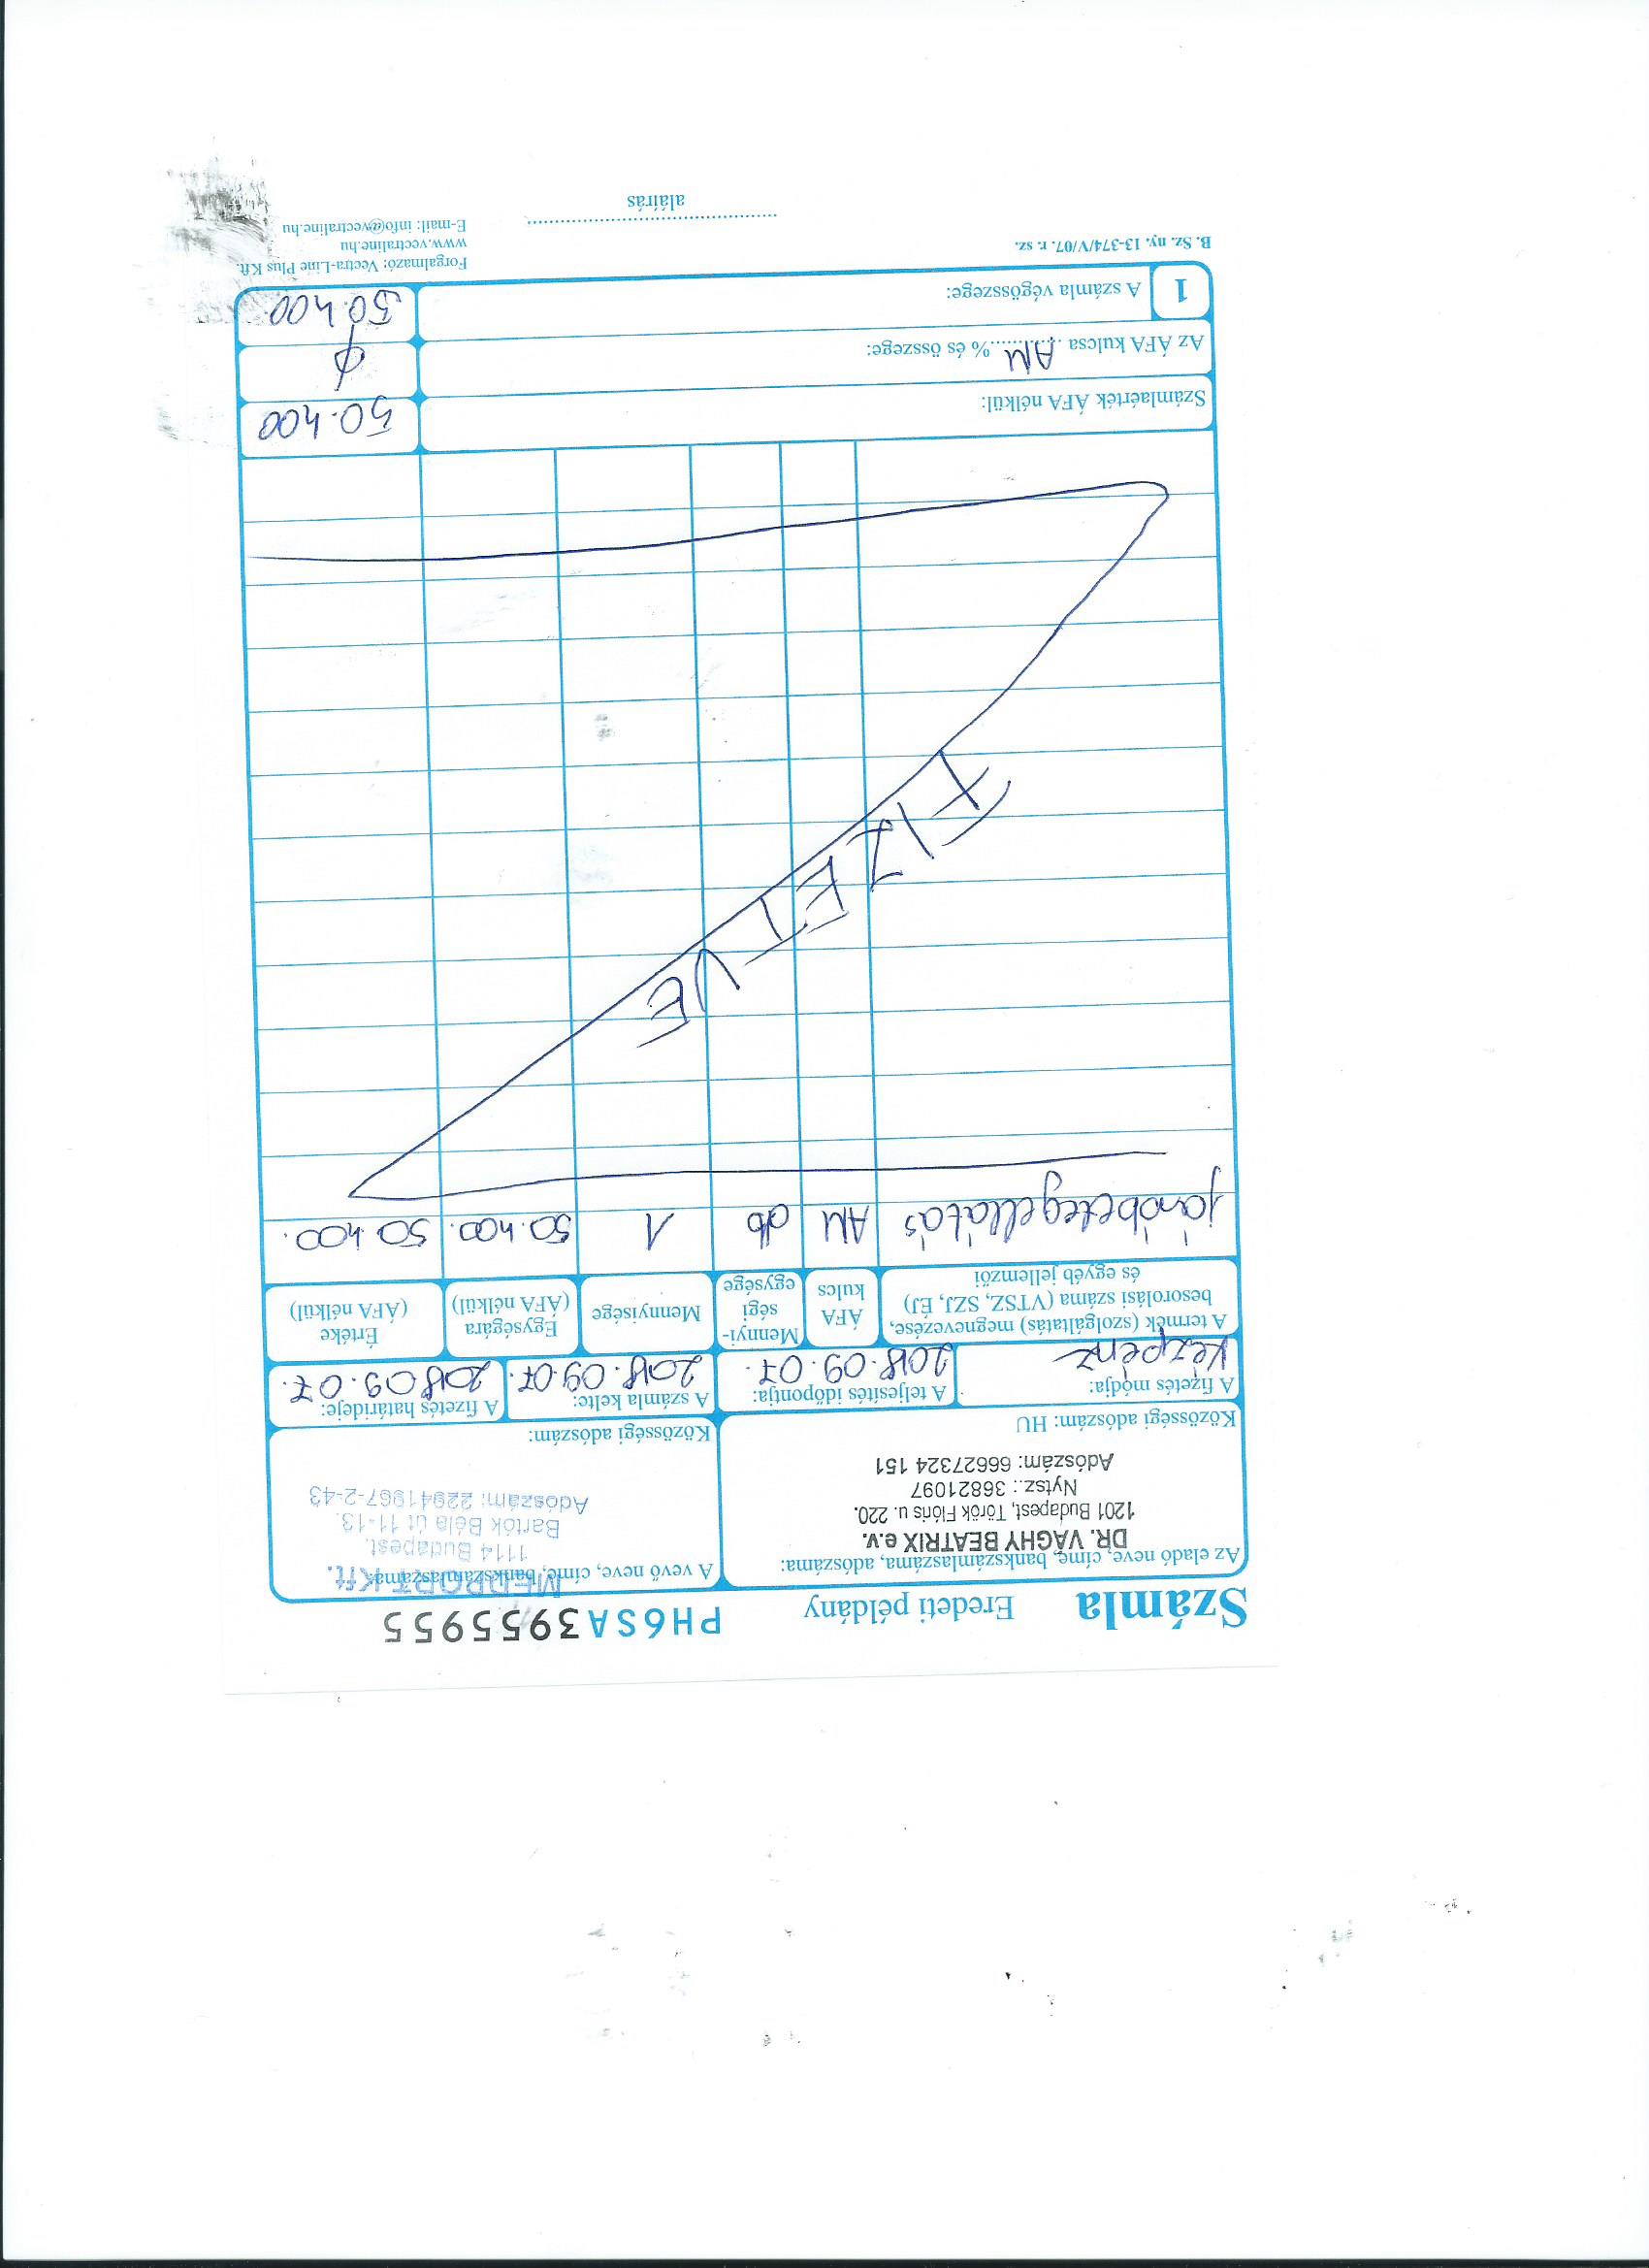 Számla Eredeti példány PH6SA3955955
Az eladó neve, címe, bankszámlaszáma, adószáma:
DR. VÁGHY BEATRIX e.v.
1201 Budapest, Török Flóris u. 220.
Nytsz.: 36821097
Adószám: 66627324 151
Közösségi adószám: HU
A vevő neve, címe, bankszámlaszáma:
MEDPORT Kft.
1114 Budapest,
Bartók Béla út 11-13.
Adószám: 22941967-2-43
Közösségi adószám:
A fizetés módja: A teljesítés időpontja: A számla kelte: A fizetés határideje:
készpénz 2018.09.07. 2018.09.07. 2018 09.07.
A termék (szolgáltatás) megnevezése, besorolási száma (VTSZ, SZJ, ÉJ) és egyéb jellemzői
ÁFA kulcs
Mennyi-
ségi
egysége
Mennyisége
Egységára
(ÁFA nélkül)
Értéke
(ÁFA nélkül)
járóbetegellátás AM db 1 50.400. 50 400.
FIZETVE
Számlaérték ÁFA nélkül: 50.400
Az ÁFA kulcsa AM % és összege: ϕ
1 A számla végösszege: 50.400
B. Sz. ny. 13-374/V/07. r. sz.
aláírás
Forgalmazó: Vectra-Line Plus Kft.
www.vectraline.hu
E-mail: info@vectraline.hu